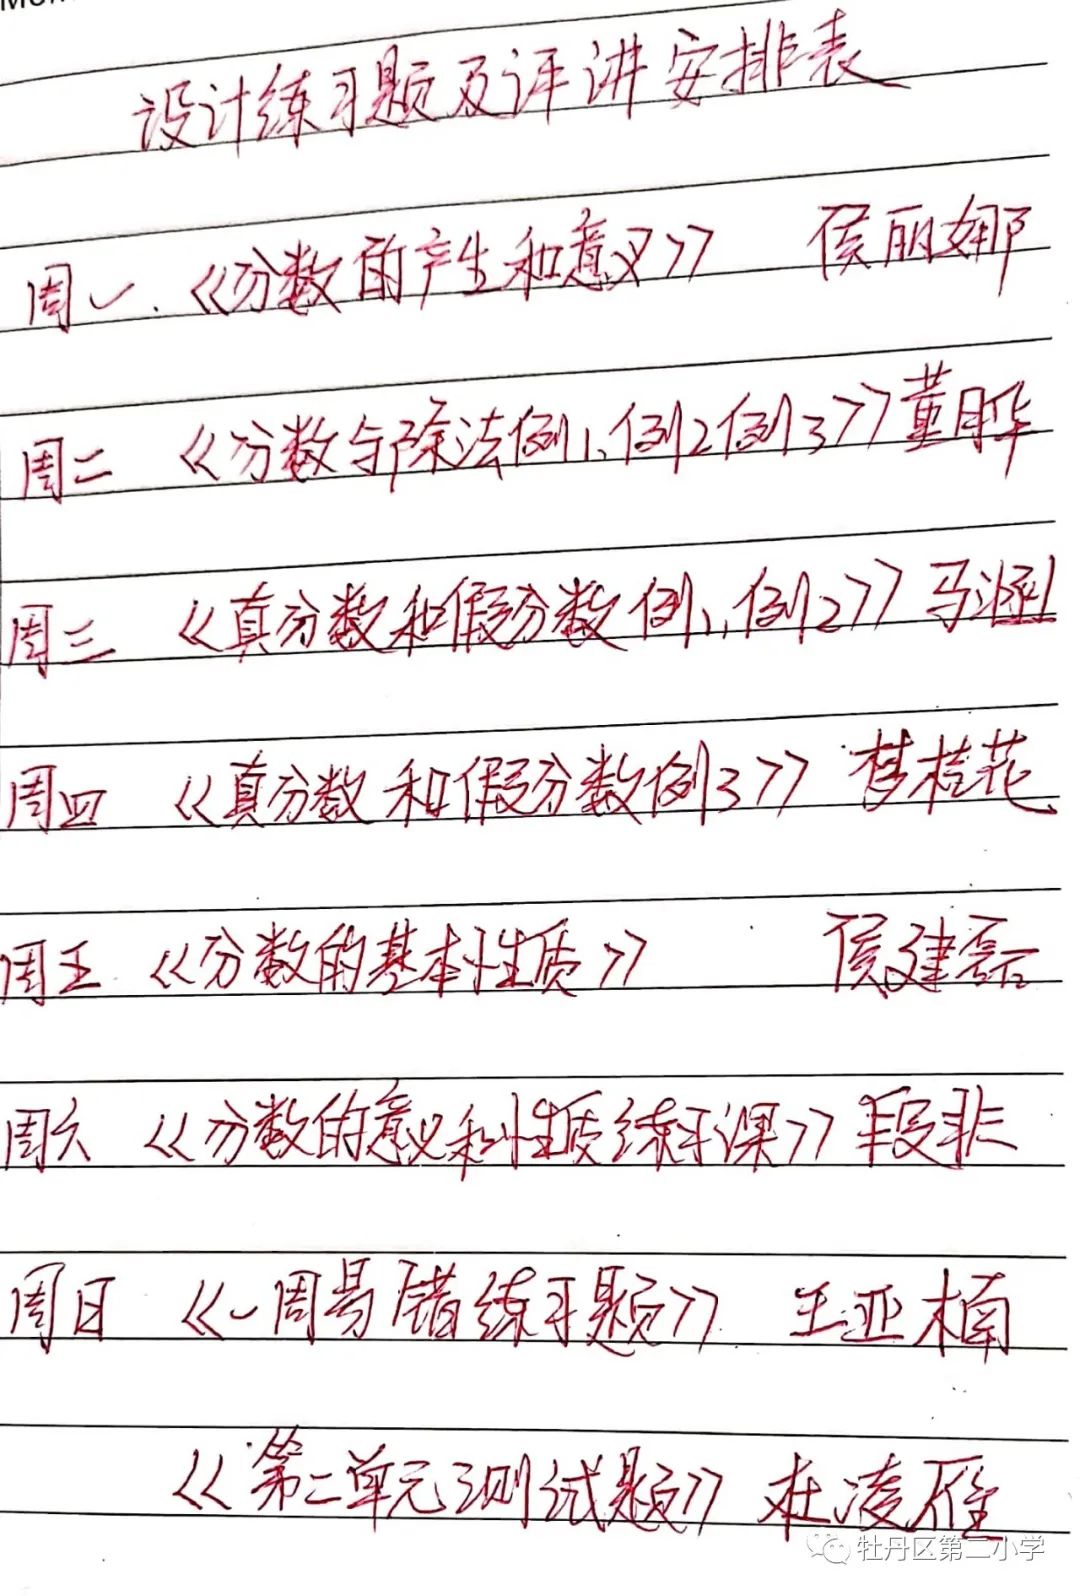 设计练习题及评讲安排表
周一.《分数的产生和意义》 侯丽娜
周二 《分数与除法例1、例2例3》董月华
周三 《真分数和假分数例1、例2》马
周四 《真分数和假分数例3》 桂花
周五 《分数的基本性质》 侯建磊
周六 《分数的意义和性质练习课》段非
周日 《一周易错练习题》 王亚楠
《第二单元测试题》杜凌雁
牡丹区第二小学